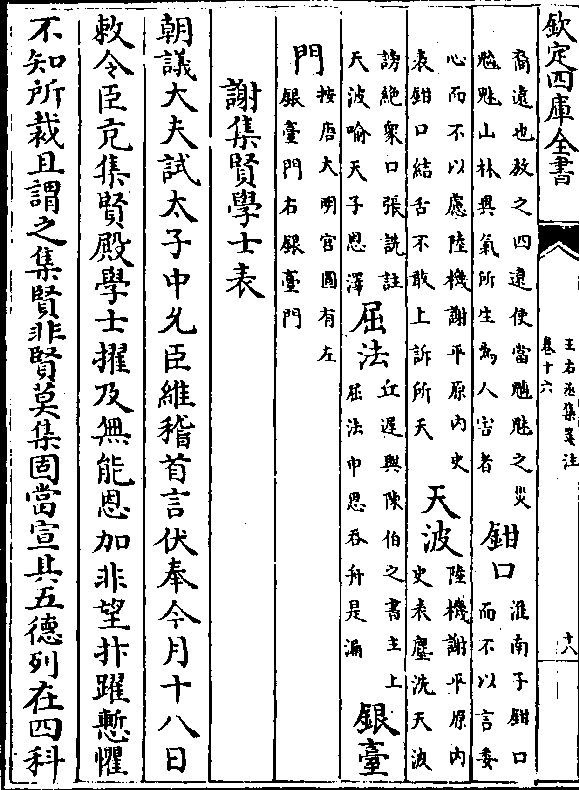 欽定四庫全書
王右丞集箋注
卷十六
十八
裔遠也放之四遠使當魑魅之災
魑魅山林異氣所生為人害者
鉗口
淮南子鉗口
而不以言委
心而不以慮陸機謝平原內史
表鉗口結舌不敢上訴所天
天波
陸機謝平原內
史表塵洗天波
謗絶衆口張詵註
天波喻天子恩澤
屈法
丘遲與陳伯之書主上
屈法申恩吞舟是漏
銀臺
門
按唐大明宫圖有左
銀臺門右銀臺門
謝集賢學士表
朝議大夫試太子中允臣維稽首言伏奉今月十八日
敕令臣充集賢殿學士擢及無能恩加非望抃躍慙懼
不知所裁且謂之集賢非賢莫集固當宣其五德列在四科